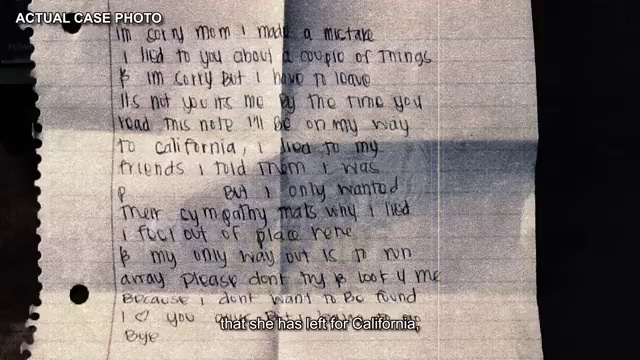 ACTUAL CASE PHOTO
Im sorry mom I made a mistake
I lied to you about a couple of things
& Im sorry But I have to leave
its not you its me By the time you
read this note I'll be on my way
to california, I lied to my
friends I told them I was
p But I only wanted
Their sympathy thats why I lied
I feel out of place here
& my only way out is to run
array please dont try & look 4 me
Because I dont want to Be found
I ♡ you guys But I have to go
that she has left for California,
Bye